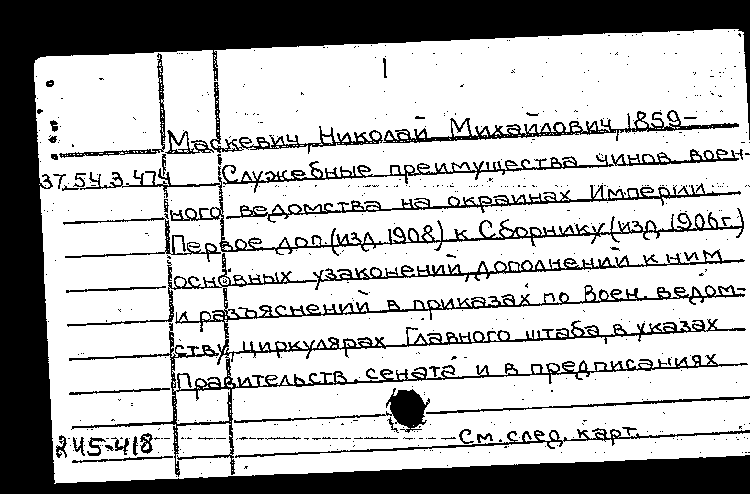 Маскевич, Николай Михайлович, 1859-
37.54.3.474 Служебные преимущества чинов воен-
ного ведомства на окраинах Империи.
Первое доп. (изд. 1908) к Сборнику (изд. 1906 г.)
основных узаконений, дополнений к ним
и разъяснений в приказах по Воен. ведом-
ству, циркулярах Главного штаба, в указах
Правительств. сената и в предписаниях
245-418 См. след. карт.